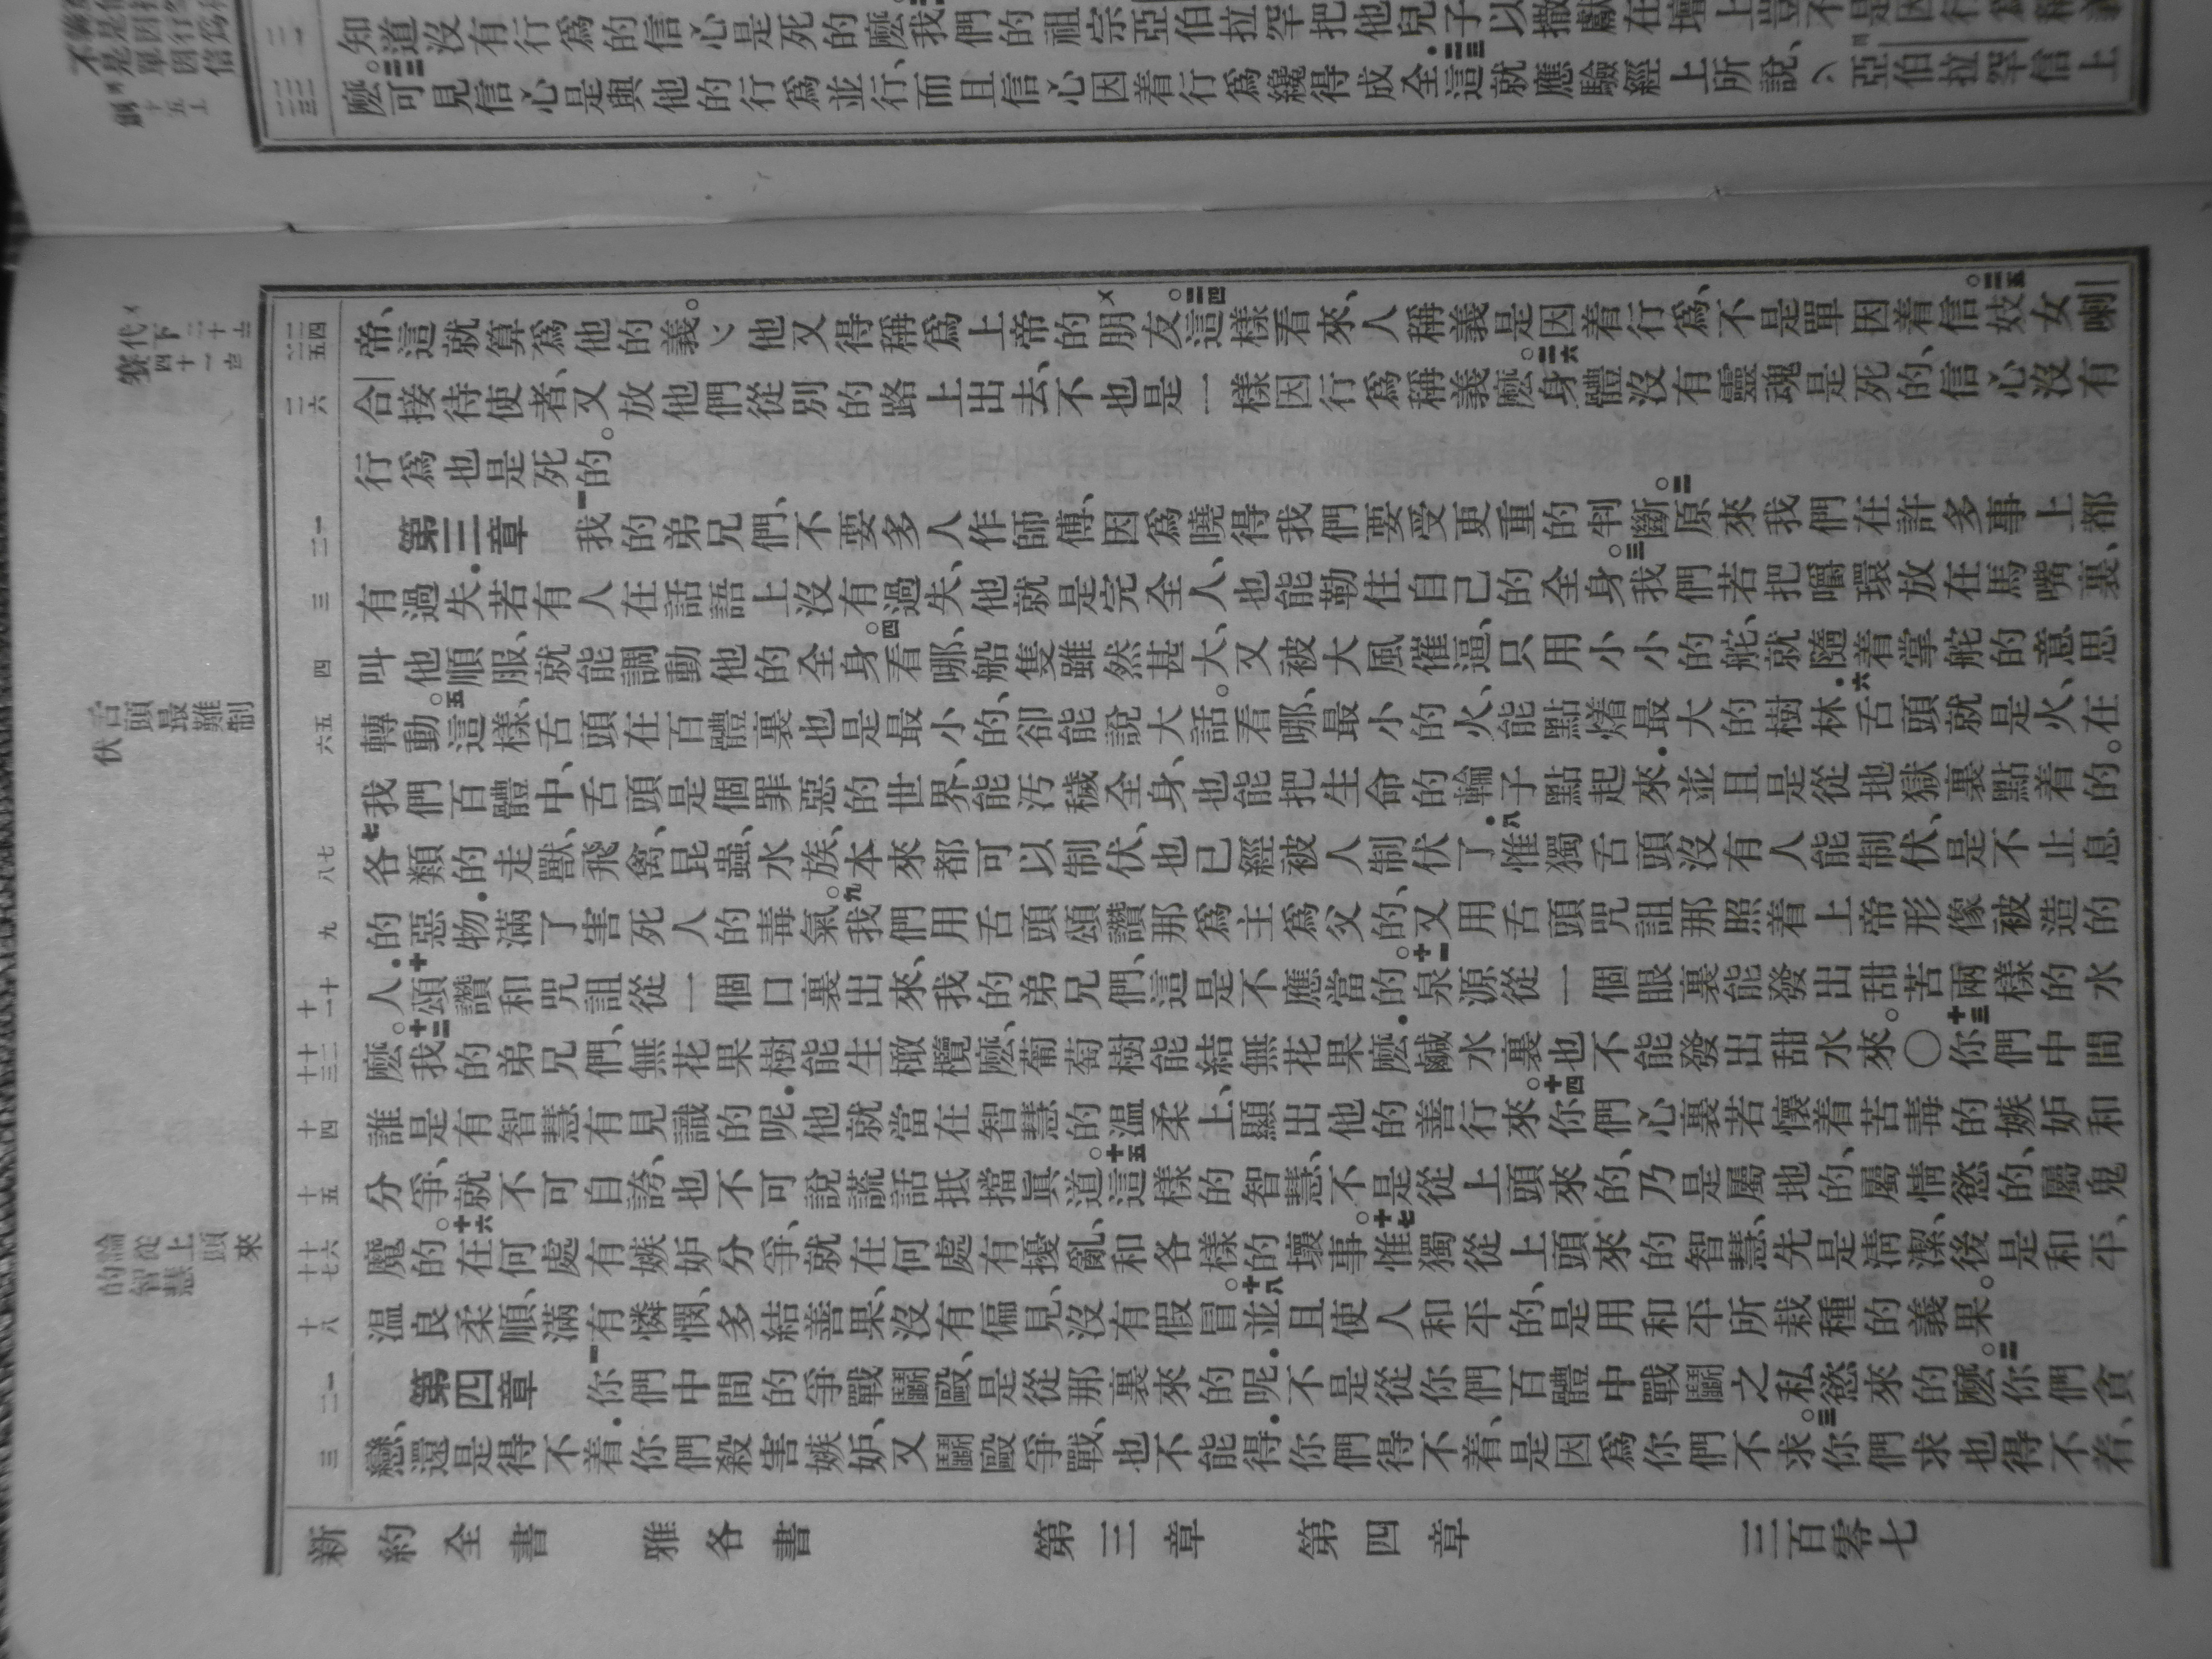 知道沒有行爲的信心是死的麽我們的祖宗亞伯拉罕把他兒子以撒獻在壇上豈不是因行爲稱義
麽。可見信心是與他的行爲並行、而且信心因着行爲纔得成全.這就應驗經上所說、亞伯拉罕信上
帝、這就算爲他的義。他又得稱爲上帝的朋友。二四這樣看來、人稱義是因着行爲、不是單因着信。二五妓女喇
合接待使者、又放他們從別的路上出去、不也是一樣因行爲稱義麽。二六身體沒有靈魂是死的、信心沒有
行爲也是死的。
第三章 一我的弟兄們、不要多人作師傅、因爲曉得我們要受更重的判斷。二原來我們在許多事上都
有過失.若有人在話語上沒有過失、他就是完全人、也能勒住自己的全身。三我們若把嚼環放在馬嘴裏、
叫他順服、就能調動他的全身。四看哪、船隻雖然甚大、又被大風催逼、只用小小的舵、就隨着掌舵的意思
轉動。五這樣、舌頭在百體裏也是最小的、卻能說大話。看哪、最小的火、能點燔最大的樹林.六舌頭就是火、在
我們百體中、舌頭是個罪惡的世界、能汚穢全身、也能把生命的輪子點起來.並且是從地獄裏點着的。
七各類的走獸、飛禽、昆蟲、水族、本來都可以制伏、也已經被人制伏了.八惟獨舌頭沒有人能制伏、是不止息
的惡物.滿了害死人的毒氣。九我們用舌頭頌讚那爲主爲父的、又用舌頭咒詛那照着上帝形像被造的
人.十頌讚和咒詛從一個口裏出來、我的弟兄們、這是不應當的。十一泉源從一個眼裏能發出甜苦兩樣的水
麽。十二我的弟兄們、無花果樹能生橄欖麽、葡萄樹能結無花果麽.鹹水裏也不能發出甜水來。〇十三你們中間
誰是有智慧有見識的呢.他就當在智慧的温柔上、顯出他的善行來。十四你們心裏若懷着苦毒的嫉妒和
分爭、就不可自誇、也不可說謊話抵擋眞道。十五這樣的智慧、不是從上頭來的、乃是屬地的、屬情慾的、屬鬼
魔的。十六在何處有嫉妒分爭、就在何處有擾亂、和各樣的壞事。十七惟獨從上頭來的智慧、先是淸潔、後是和平、
温良柔順、滿有憐憫、多結善果、沒有偏見、沒有假冒。十八並且使人和平的、是用和平所栽種的義果。
第四章 一你們中間的爭戰鬭毆、是從那裏來的呢.不是從你們百體中戰鬭之私慾來的麽。二你們貪
戀、還是得不着.你們殺害嫉妒、又鬭毆爭戰、也不能得.你們得不着、是因爲你們不求。三你們求也得不着、
新約全書 雅各書 第三章 第四章 三百零七
舌頭最難制伏
論從上頭來的智慧